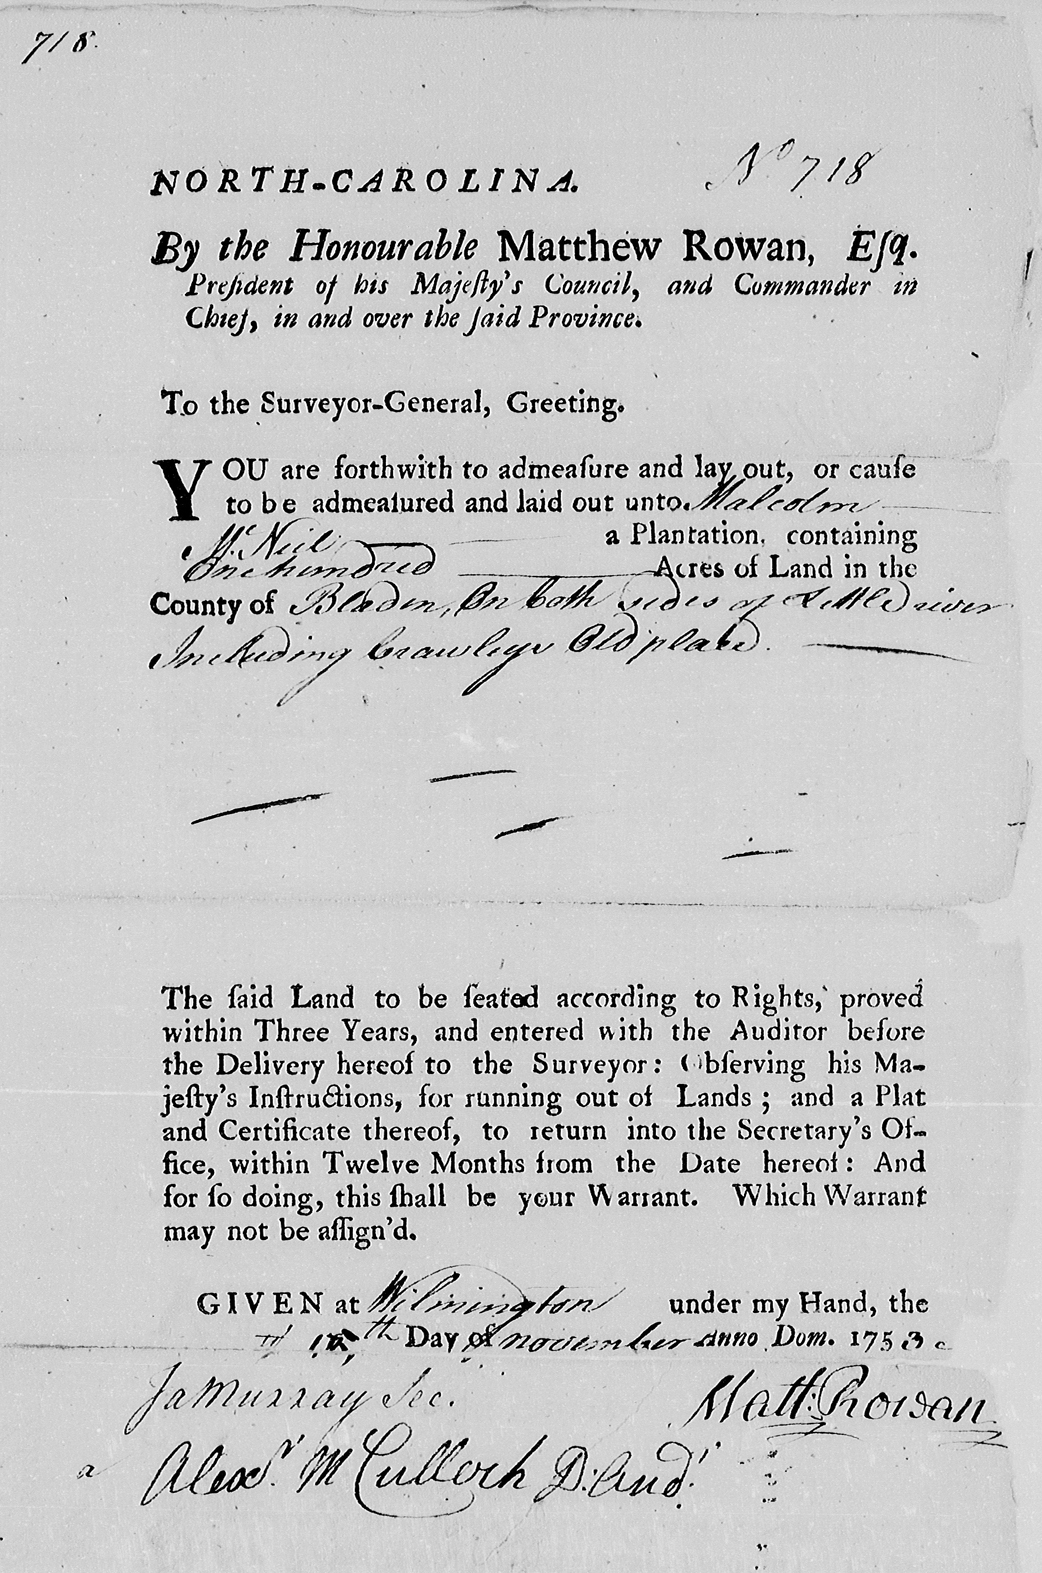 718.
NORTH-CAROLINA.
No 718
By the Honourable Matthew Rowan, Eſq.
Preſident of his Majeſty's Council, and Commander in
Chief, in and over the ſaid Province.
To the Surveyor-General, Greeting.
YOU are forthwith to admeaſure and lay out, or cauſe
to be admeaſured and laid out unto Malcolm
Mc Neil a Plantation, containing
One hundred Acres of Land in the
County of Bladen, On both sides of Little river
Including Crawleys Old place.
The ſaid Land to be ſeated according to Rights, proved
within Three Years, and entered with the Auditor before
the Delivery hereof to the Surveyor: Obſerving his Ma-
jeſty's Inſtructions, for running out of Lands; and a Plat
and Certificate thereof, to return into the Secretary's Of-
fice, within Twelve Months from the Date hereof: And
for ſo doing, this ſhall be your Warrant. Which Warrant
may not be aſſign'd.
GIVEN at Wilmington under my Hand, the
th Day of november Anno Dom. 1753
Ja Murray Sec.
Matt: Rowan
a Alexr. McCulloch D: Audr